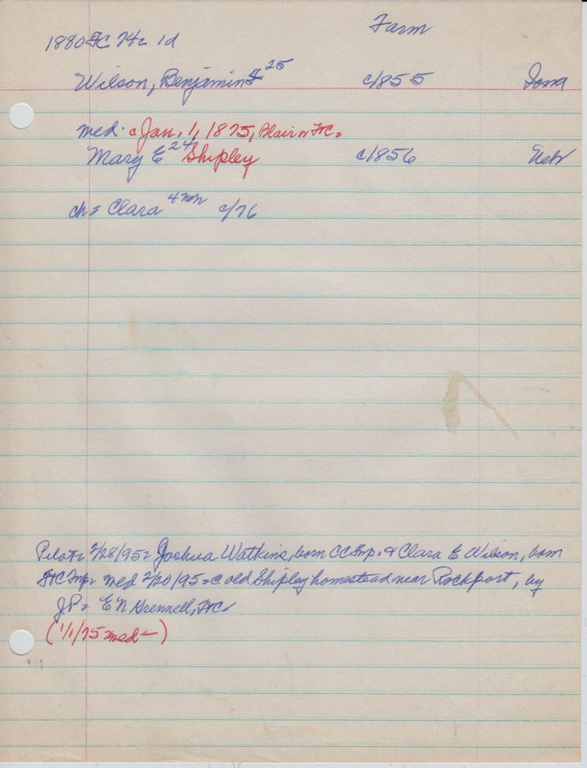 Farm
1880 FC 742 1d
Wilson, Benjamin F 25 c/1855 Iowa
med. c Jan. 1, 1875, Blair or FtC.
Mary E 24 Shipley c/1856 Nebr
ch = Clara 4 mon c/76
Pilot = 2/28/95 = Joshua Watkins, born CC Imp. & Clara E Wilson, born
FtC Imp. med 2/20/95 = c old Shipley homestead near Rockport, by
J.P. = E N Grennell, FtC
(1/1/75 med -)